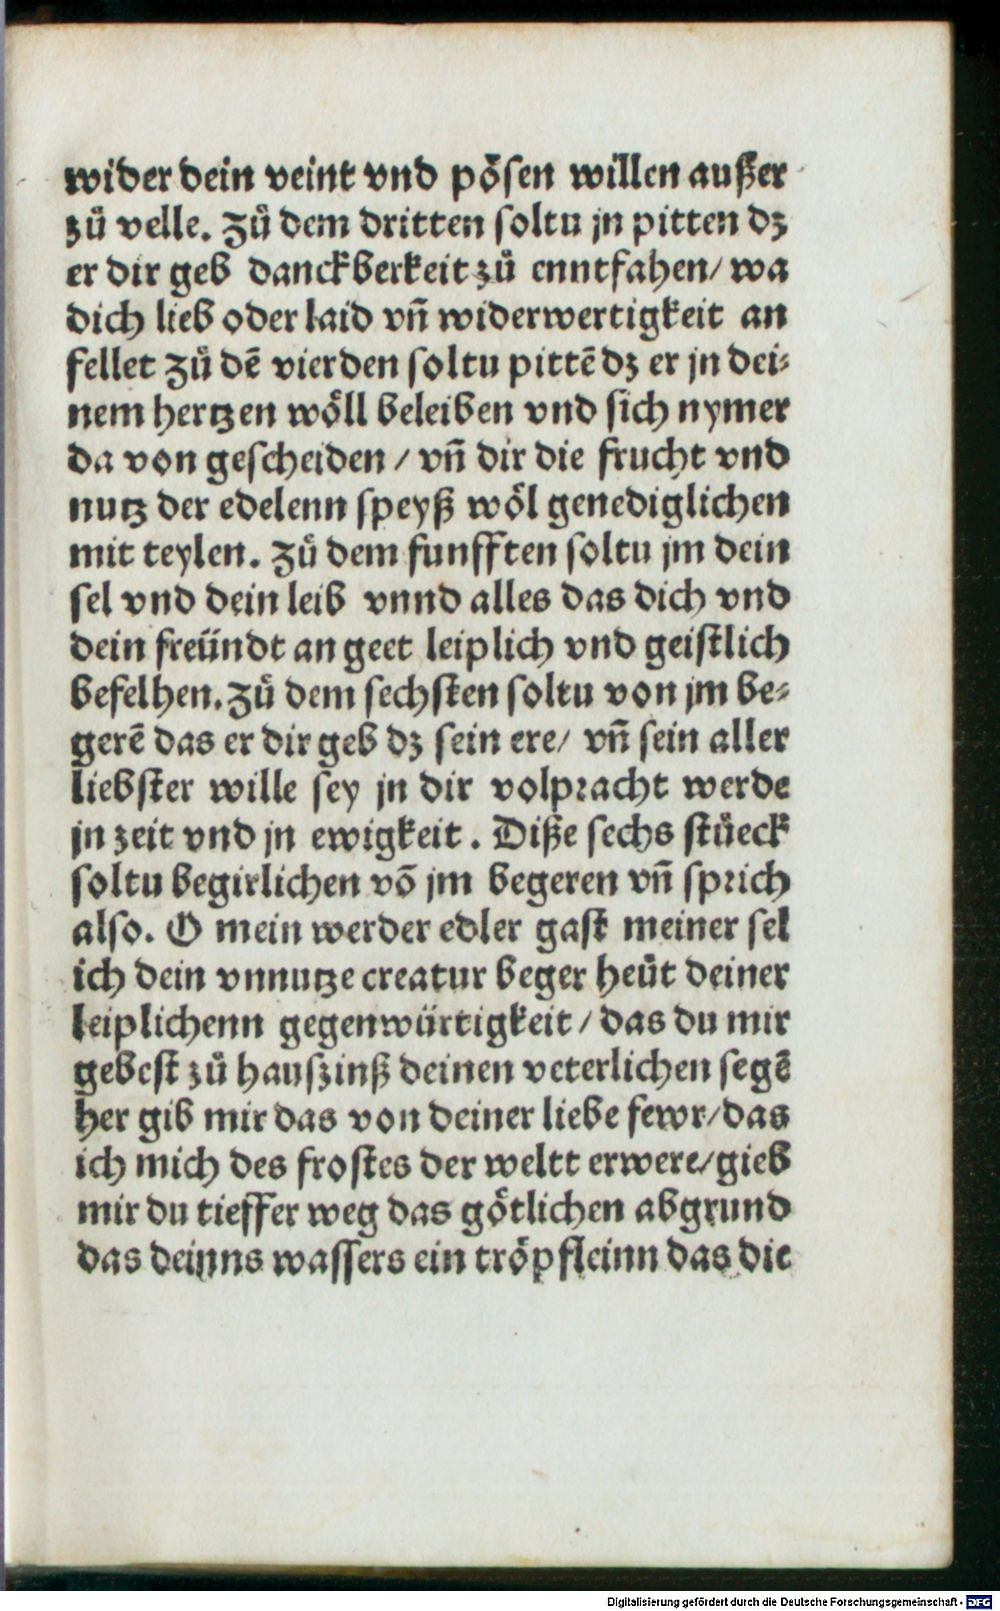 wider dein veint vnd pösen willen außer
zů velle. Zů dem dritten soltu jn pitten dz
er dir geb danckberkeit zů enntfahen/ wa
dich lieb oder laid vñ widerwertigkeit an
fellet Zů dē vierden soltu pittē dz er jn dei⸗
nem hertzen wöll beleiben vnd sich nymer
da von gescheiden / vñ dir die frucht vnd
nutz der edelenn speyß wöl genediglichen
mit teylen. Zů dem funfften soltu jm dein
sel vnd dein leib vnnd alles das dich vnd
dein freündt an geet leiplich vnd geistlich
befelhen. Zů dem sechsten soltu von jm be⸗
gerē das er dir geb dz sein ere/ vñ sein aller
liebster wille sey jn dir volpracht werde
jn zeit vnd jn ewigkeit. Diße sechs stüeck
soltu begirlichen vō jm begeren vñ sprich
also. O mein werder edler gast meiner sel
ich dein vnnutze creatur beger heüt deiner
leiplichenn gegenwürtigkeit / das du mir
gebest zů hauszinß deinen veterlichen segē
her gib mir das von deiner liebe fewr/das
ich mich des frostes der weltt erwere/gieb
mir du tieffer weg das götlichen abgrund
das deinns wassers ein tröpfleinn das die
Digitalisierung gefördert durch die Deutsche Forschungsgemeinschaft - DFG